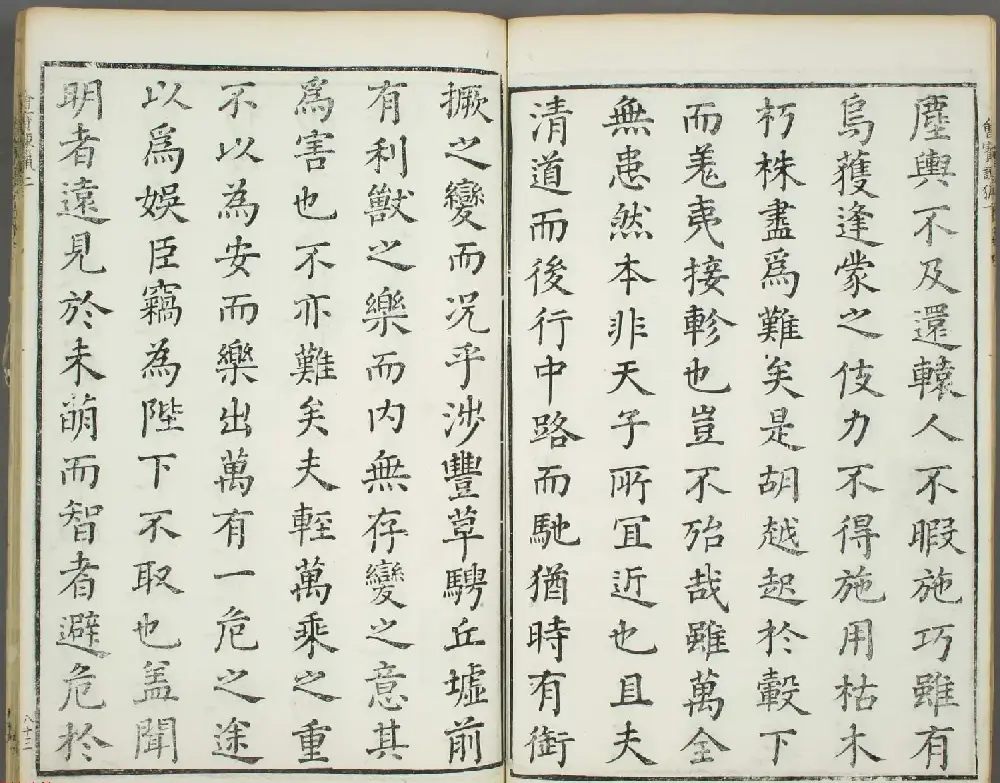 塵輿不及還轅人不暇施巧雖有
烏獲逢蒙之伎力不得施用枯木
朽株盡爲難矣是胡越起於轂下
而羗夷接軫也豈不殆哉雖萬全
無患然本非天子所冝近也且夫
清道而後行中路而馳猶時有銜
撅之變而况乎涉豐草騁丘墟前
有利獸之樂而内無存變之意其
爲害也不亦難矣夫輕萬乘之重
不以為安而樂出萬有一危之途
以爲娛臣竊為陛下不取也盖聞
明者遠見於未萌而智者避危於
八十二